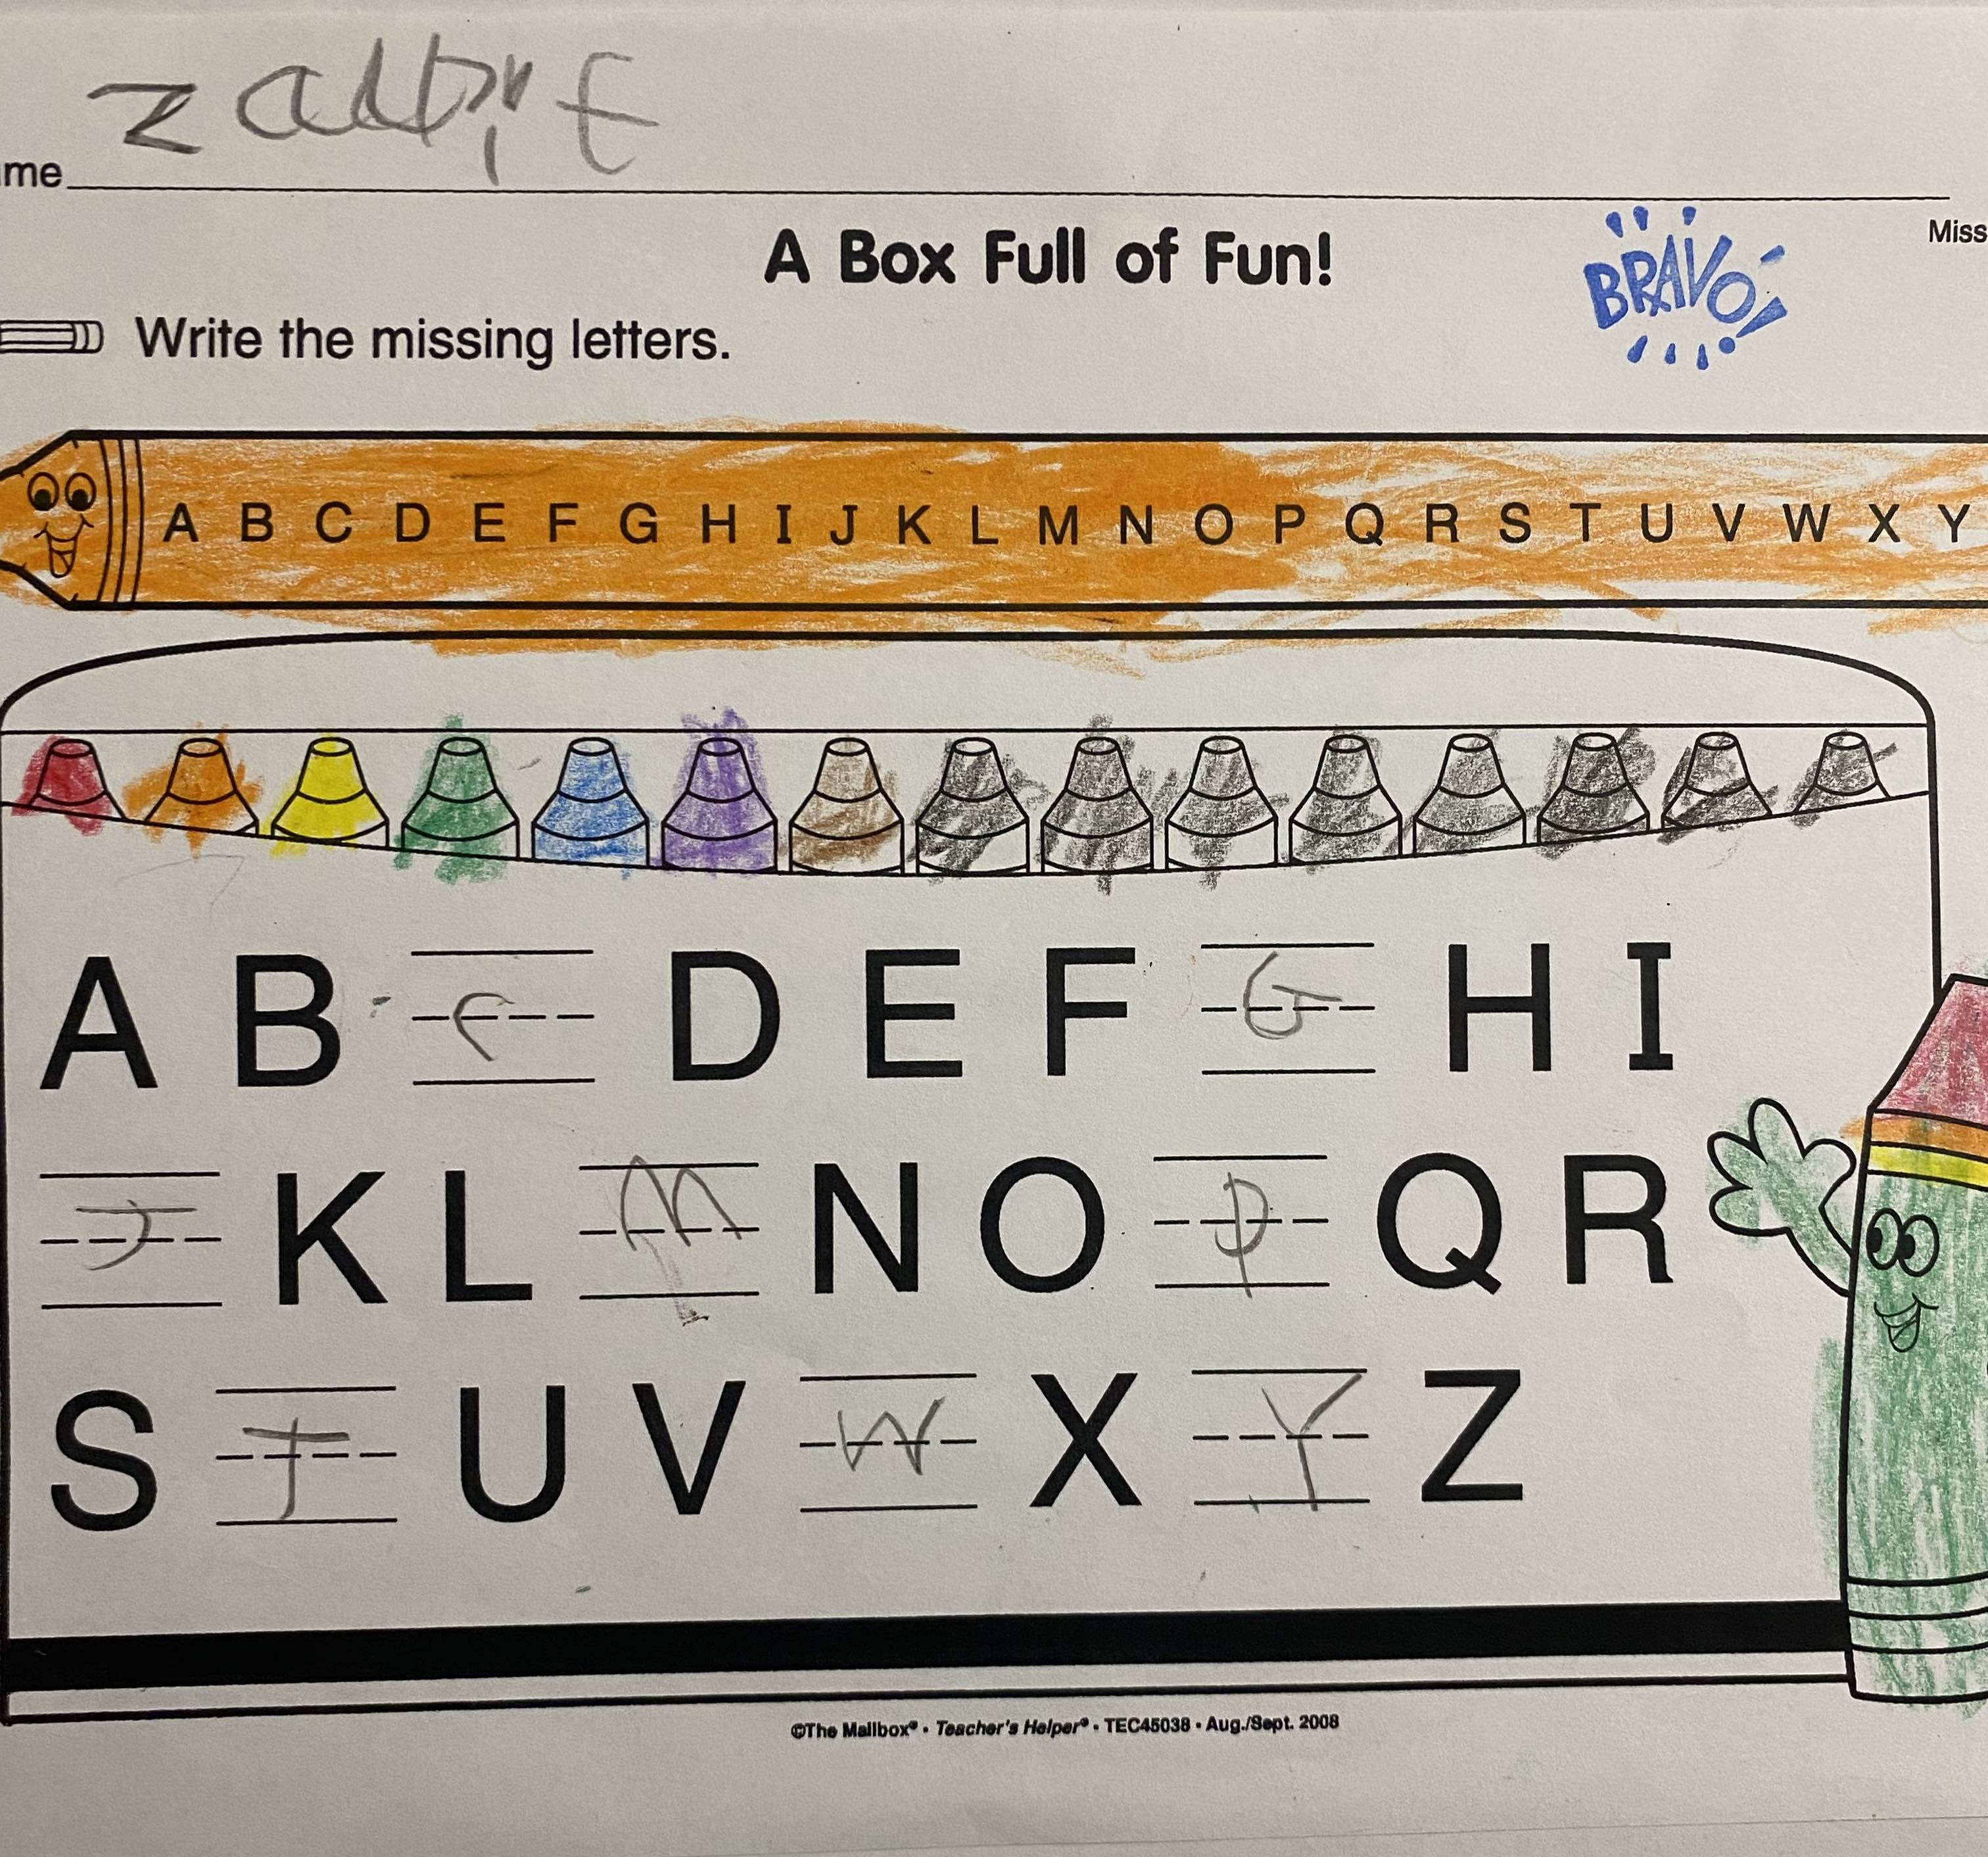 me
A Box Full of Fun!
BRAVO!
Miss
Write the missing letters.
A B C D E F G H I J K L M N O P Q R S T U V W X Y
A B C D E F G H I
J K L M N O P Q R
S T U V W X Y Z
©The Mailbox® • Teacher's Helper® • TEC45038 • Aug./Sept. 2008